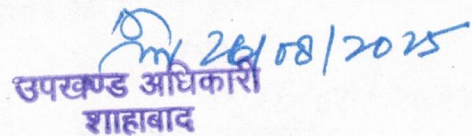 26/08/2025
उपखण्ड अधिकारी
शाहाबाद